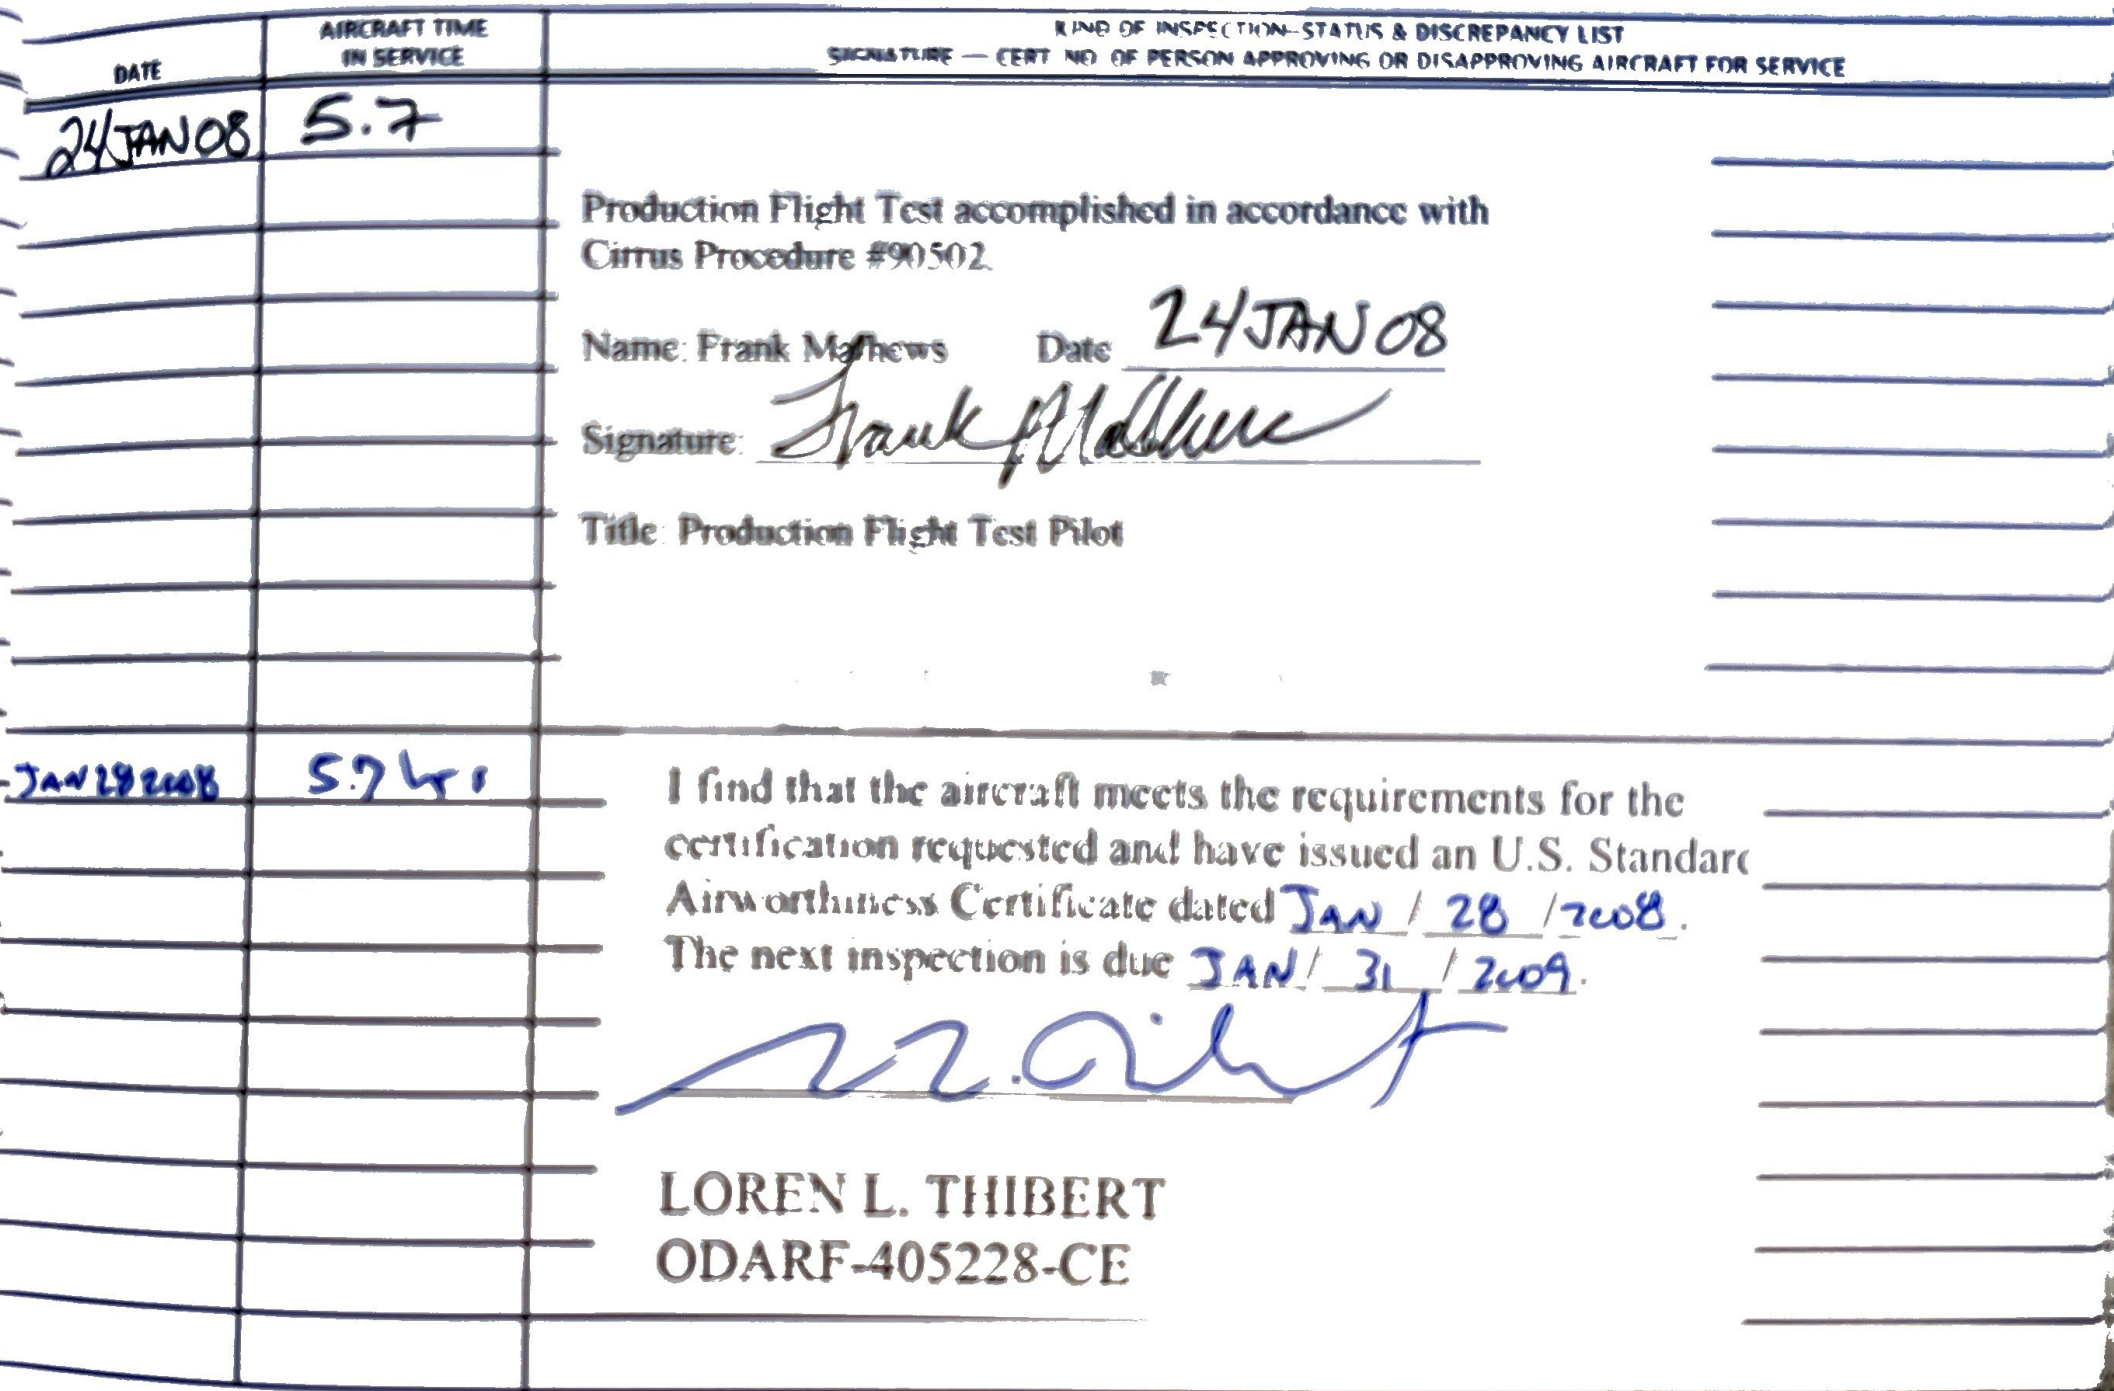 DATE
AIRCRAFT TIME
IN SERVICE
KIND OF INSPECTION-STATUS & DISCREPANCY LIST
SIGNATURE — CERT NO OF PERSON APPROVING OR DISAPPROVING AIRCRAFT FOR SERVICE
24JAN08 5.7
Production Flight Test accomplished in accordance with
Cirrus Procedure #90502
Name: Frank Mathews Date 24JAN08
Signature: Frank Mathews
Title: Production Flight Test Pilot
JAN 28 2008 5.7 hrs
I find that the aircraft meets the requirements for the
certification requested and have issued an U.S. Standard
Airworthiness Certificate dated JAN / 28 / 2008.
The next inspection is due JAN / 31 / 2009.
LOREN L. THIBERT
ODARF-405228-CE